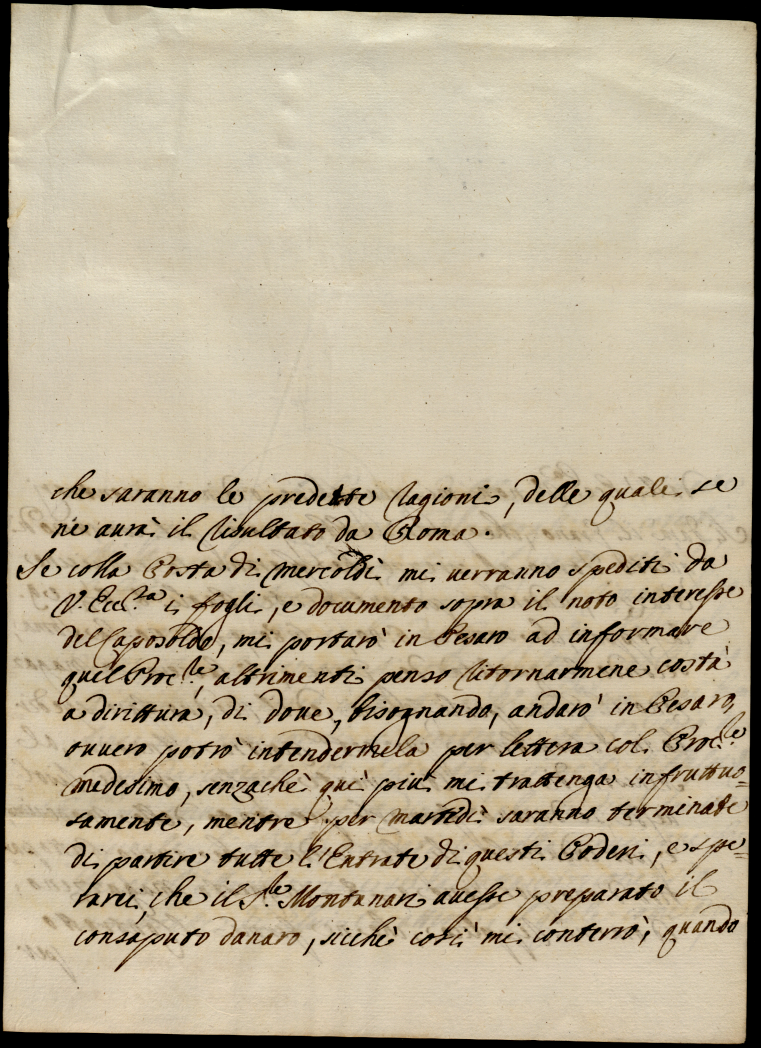 che saranno le predette ragioni, delle quali se
n'è aurà il risultato da Roma.
Se colla Posta di mercoldì mi verranno spediti da
V. Ecc.za i fogli, e documento sopra il noto interesse
del Caposoldo, mi portarò in Pesaro ad informare
quel Proc.le, altrimenti penso ritornarmene costà
a dirittura, di dove, bisognando, andarò in Pesaro,
ovvero potrò intendermela per lettera col Proc.le
medesimo, senzachè quì più mi trattenga infruttuo=
samente, mentre per martedì saranno terminate
di partire tutte l'Entrate di questi Poderi, e spe=
rarei, che il S.re Montanari avesse preparato il
consaputo danaro, sicchè così mi conterrò, quando